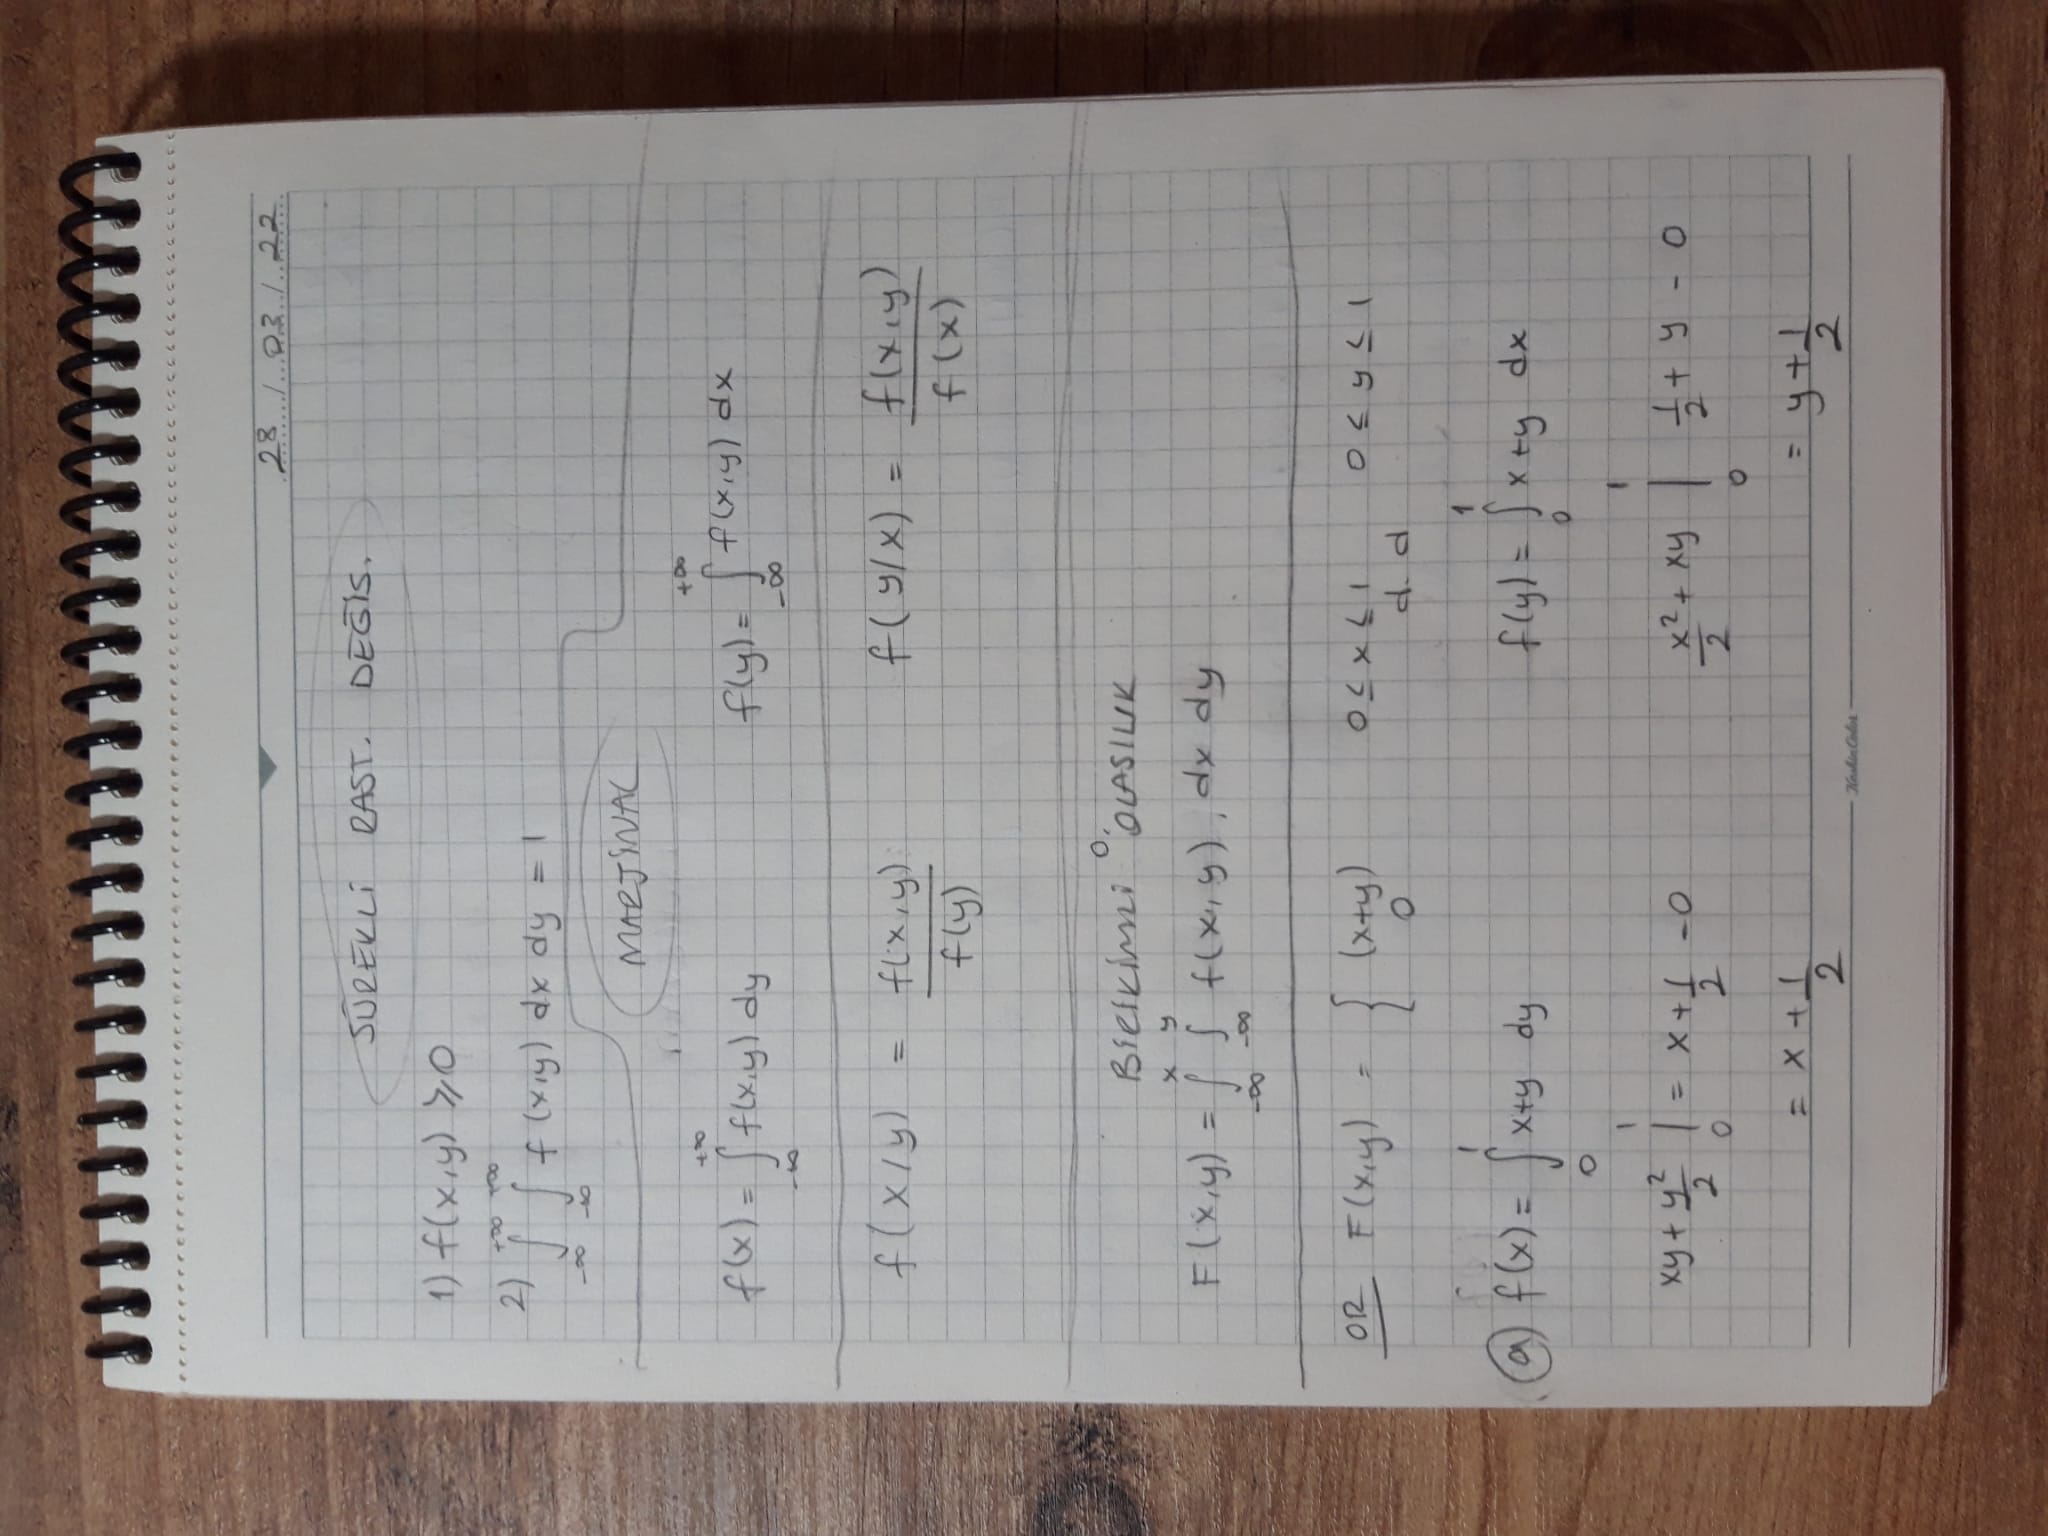 28 / 03 / 22
SÜREKLİ RAST. DEĞİŞ.
1) f(x,y) ⩾ 0
2) ∫_{-∞}^{+∞} ∫_{-∞}^{+∞} f(x,y) dx dy = 1
MARJİNAL
f(x) = ∫_{-∞}^{+∞} f(x,y) dy    f(y) = ∫_{-∞}^{+∞} f(x,y) dx
f(x/y) = f(x,y)/f(y)    f(y/x) = f(x,y)/f(x)
BİRİKİMLİ OLASILIK
F(x,y) = ∫_{-∞}^{x} ∫_{-∞}^{y} f(x,y). dx dy
ÖR F(x,y) = { (x+y)    0 ≤ x ≤ 1    0 ≤ y ≤ 1
0    d. d
a) f(x) = ∫_{0}^{1} x+y dy    f(y) = ∫_{0}^{1} x+y dx
xy + y²/2 |_{0}^{1} = x + 1/2 - 0    x²/2 + xy |_{0}^{1} 1/2 + y - 0
= x + 1/2    = y + 1/2